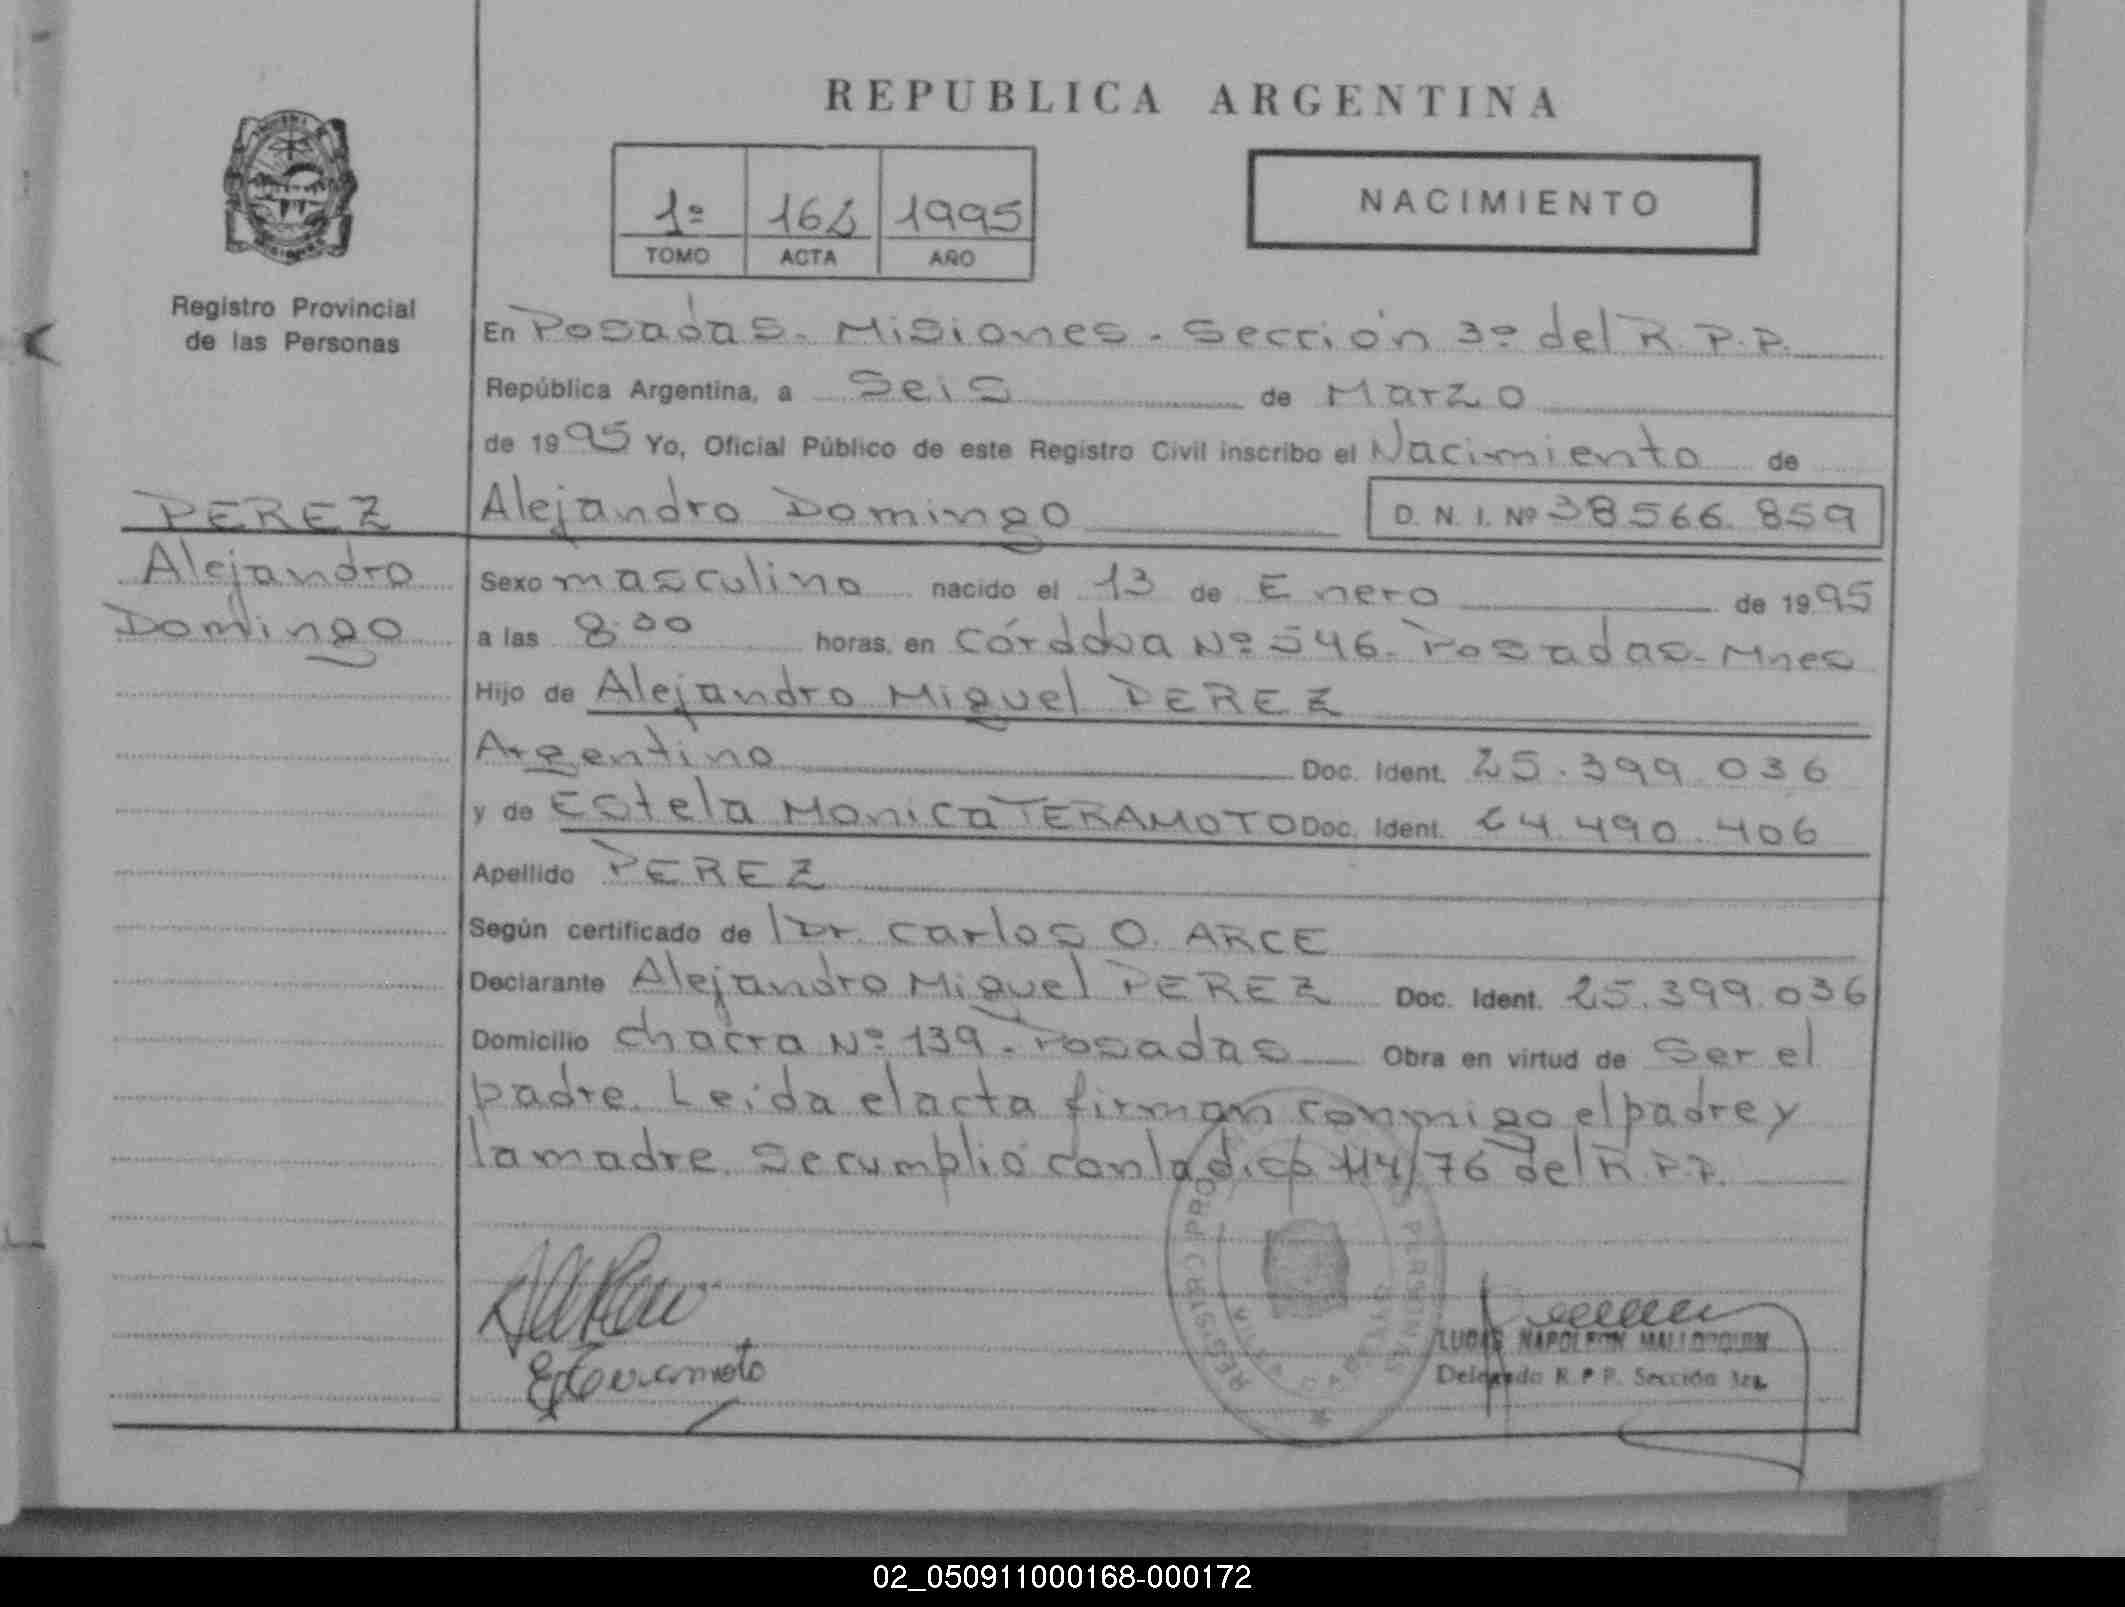 REPUBLICA ARGENTINA
1º 164 1995
TOMO ACTA AÑO
NACIMIENTO
Registro Provincial
de las Personas
En Posadas - Misiones - Sección 3º del R. P. P.
República Argentina, a Seis de Marzo
de 1995 Yo, Oficial Público de este Registro Civil inscribo el Nacimiento de
PEREZ
Alejandro
Domingo
Alejandro Domingo D. N. I. Nº 38566.859
Sexo masculino nacido el 13 de Enero de 1995
a las 8:00 horas, en Córdova Nº 546. Posadas - Mnes
Hijo de Alejandro Miguel PEREZ
Argentino Doc. Ident. 25.399.036
y de Estela Monica TERAMOTO Doc. Ident. 24.490.406
Apellido PEREZ
Según certificado de Dr. Carlos O. ARCE
Declarante Alejandro Miguel PEREZ Doc. Ident. 25.399.036
Domicilio chacra Nº 139 - Posadas Obra en virtud de Ser el
padre. Leida el acta firman conmigo el padre y
la madre. Se cumplió con la dicp 114/76 del R.P.P.
LUCAS NAPOLEON
Delegado R.P.P. Sección 3ra.
02_050911000168-000172